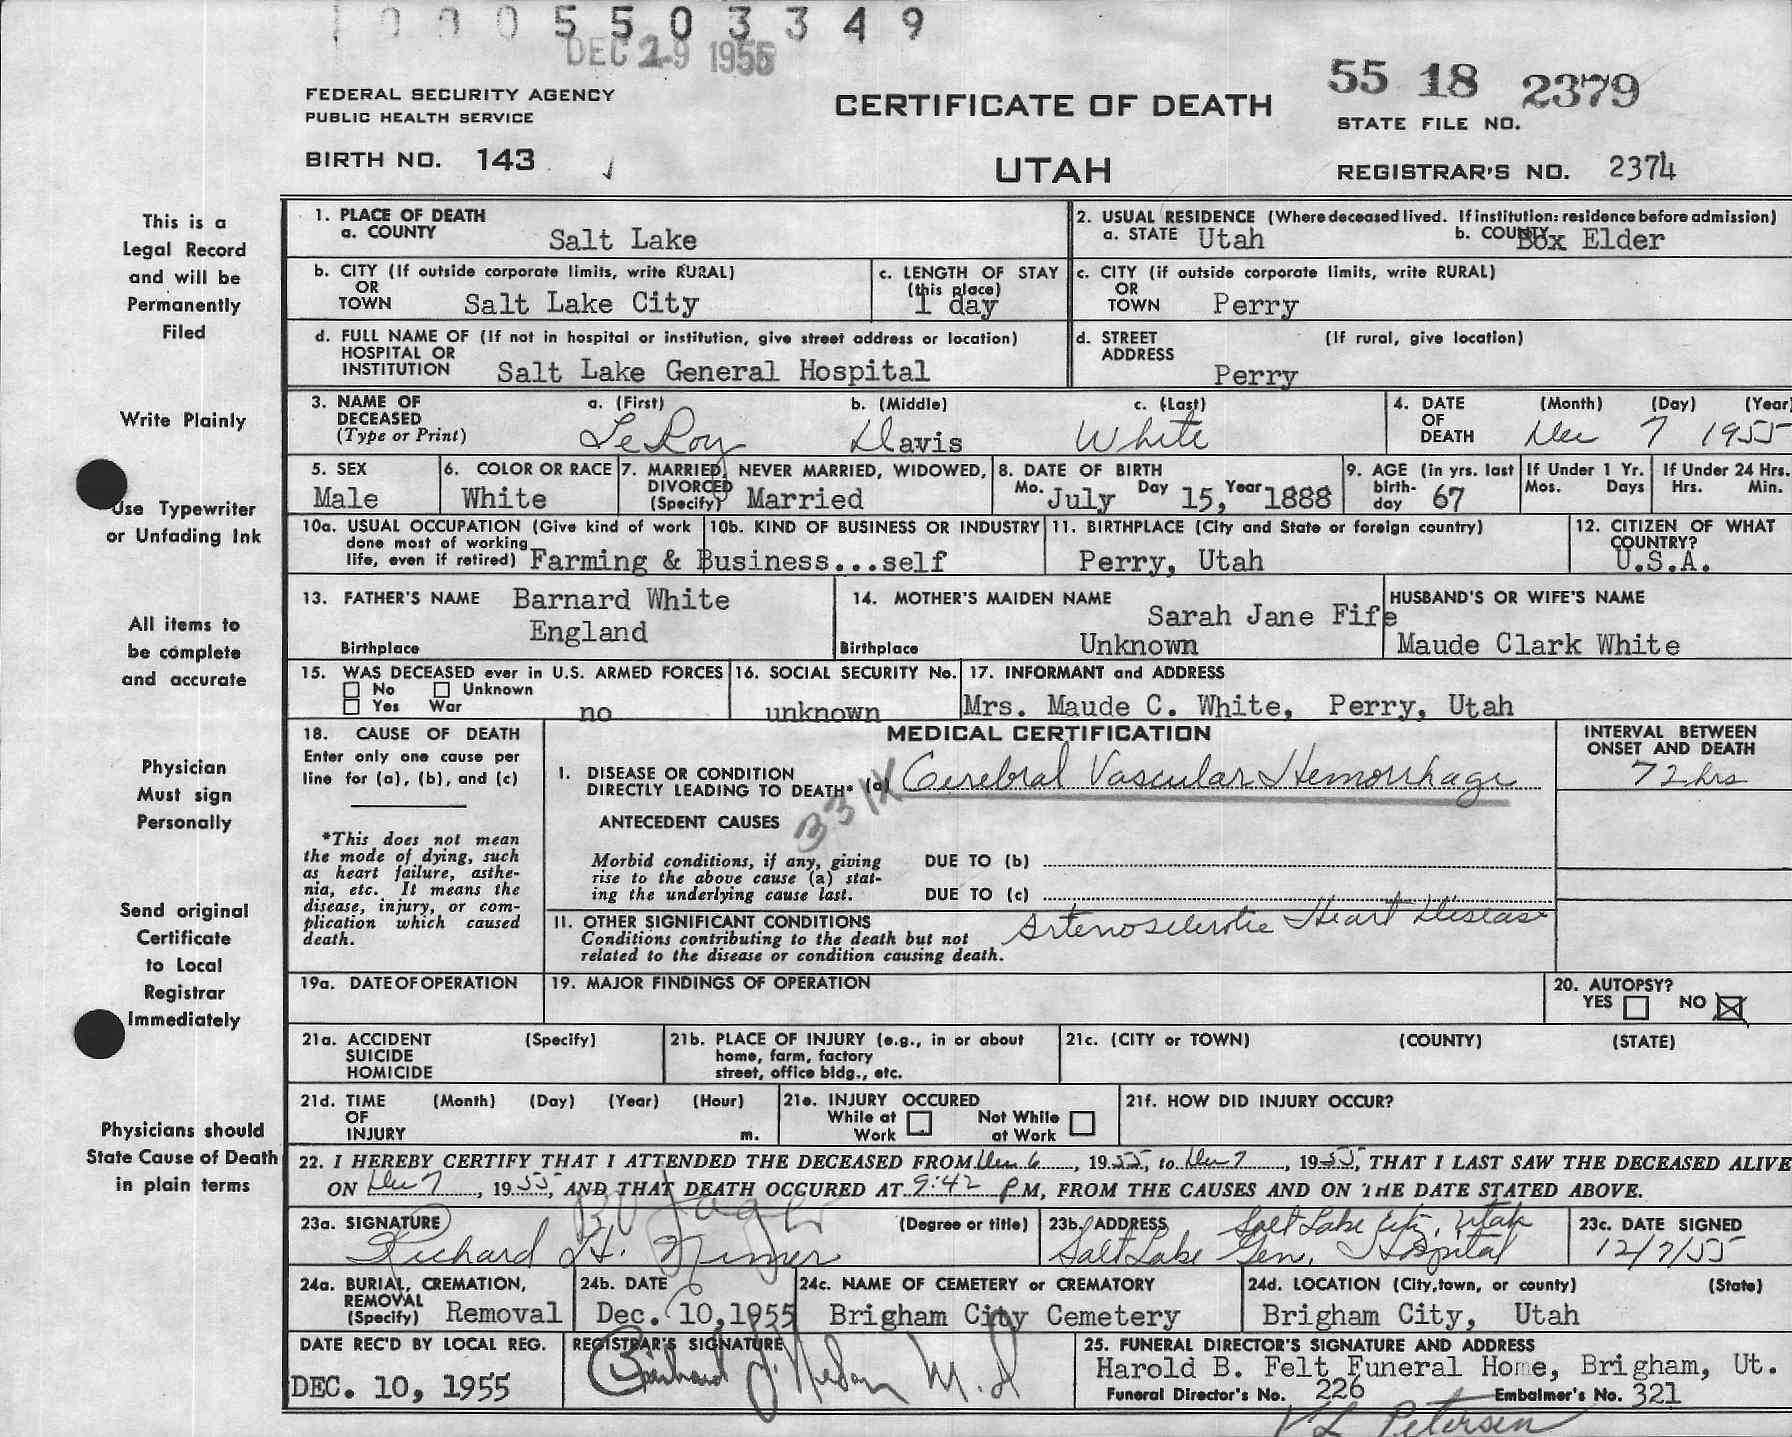 1000 5503349
DEC 29 1955
FEDERAL SECURITY AGENCY
PUBLIC HEALTH SERVICE
CERTIFICATE OF DEATH
55 18 2379
STATE FILE NO.
BIRTH NO. 143
UTAH
REGISTRAR'S NO. 2374
This is a
Legal Record
and will be
Permanently
Filed
Write Plainly
Use Typewriter
or Unfading Ink
All items to
be complete
and accurate
Physician
Must sign
Personally
Send original
Certificate
to Local
Registrar
Immediately
Physicians should
State Cause of Death
in plain terms
1. PLACE OF DEATH
a. COUNTY Salt Lake
2. USUAL RESIDENCE (Where deceased lived. If institution: residence before admission)
a. STATE Utah b. COUNTY Box Elder
b. CITY (If outside corporate limits, write RURAL)
OR
TOWN Salt Lake City
c. LENGTH OF STAY
(this place)
1 day
c. CITY (if outside corporate limits, write RURAL)
OR
TOWN Perry
d. FULL NAME OF (If not in hospital or institution, give street address or location)
HOSPITAL OR
INSTITUTION Salt Lake General Hospital
d. STREET (If rural, give location)
ADDRESS
Perry
3. NAME OF a. (First) b. (Middle) c. (Last)
DECEASED
(Type or Print) LeRoy Davis White
4. DATE (Month) (Day) (Year)
OF
DEATH Dec 7 1955
5. SEX
Male
6. COLOR OR RACE
White
7. MARRIED, NEVER MARRIED, WIDOWED,
DIVORCED
(Specify) Married
8. DATE OF BIRTH
Mo. July Day 15, Year 1888
9. AGE (in yrs. last
birth-
day 67
If Under 1 Yr.
Mos. Days
If Under 24 Hrs.
Hrs. Min.
10a. USUAL OCCUPATION (Give kind of work
done most of working
life, even if retired) Farming & Business...self
10b. KIND OF BUSINESS OR INDUSTRY
11. BIRTHPLACE (City and State or foreign country)
Perry, Utah
12. CITIZEN OF WHAT
COUNTRY?
U.S.A.
13. FATHER'S NAME Barnard White
England
Birthplace
14. MOTHER'S MAIDEN NAME
Sarah Jane Fife
Birthplace Unknown
HUSBAND'S OR WIFE'S NAME
Maude Clark White
15. WAS DECEASED ever in U.S. ARMED FORCES
No Unknown
Yes War
no
16. SOCIAL SECURITY No.
unknown
17. INFORMANT and ADDRESS
Mrs. Maude C. White, Perry, Utah
18. CAUSE OF DEATH
Enter only one cause per
line for (a), (b), and (c)
*This does not mean
the mode of dying, such
as heart failure, asthe-
nia, etc. It means the
disease, injury, or com-
plication which caused
death.
MEDICAL CERTIFICATION
INTERVAL BETWEEN
ONSET AND DEATH
I. DISEASE OR CONDITION
DIRECTLY LEADING TO DEATH* (a) Cerebral Vascular Hemorrhage
72 hrs
331X
ANTECEDENT CAUSES
Morbid conditions, if any, giving
rise to the above cause (a) stat-
ing the underlying cause last.
DUE TO (b)
DUE TO (c)
II. OTHER SIGNIFICANT CONDITIONS
Conditions contributing to the death but not
related to the disease or condition causing death.
Arteriosclerotic Heart Disease
19a. DATE OF OPERATION
19. MAJOR FINDINGS OF OPERATION
20. AUTOPSY?
YES NO
21a. ACCIDENT (Specify)
SUICIDE
HOMICIDE
21b. PLACE OF INJURY (e.g., in or about
home, farm, factory
street, office bldg., etc.
21c. (CITY or TOWN) (COUNTY) (STATE)
21d. TIME (Month) (Day) (Year) (Hour)
OF
INJURY m.
21e. INJURY OCCURED
While at Not While
Work at Work
21f. HOW DID INJURY OCCUR?
22. I HEREBY CERTIFY THAT I ATTENDED THE DECEASED FROM Dec 6, 1955, to Dec 7, 1955, THAT I LAST SAW THE DECEASED ALIVE
ON Dec 7, 1955, AND THAT DEATH OCCURED AT 9:42 P M, FROM THE CAUSES AND ON THE DATE STATED ABOVE.
23a. SIGNATURE (Degree or title)
Richard H. Nimer
23b. ADDRESS Salt Lake City, Utah
Salt Lake Gen. Hospital
23c. DATE SIGNED
12/7/55
24a. BURIAL, CREMATION,
REMOVAL
(Specify) Removal
24b. DATE
Dec. 10, 1955
24c. NAME OF CEMETERY or CREMATORY
Brigham City Cemetery
24d. LOCATION (City, town, or county) (State)
Brigham City, Utah
DATE REC'D BY LOCAL REG.
DEC. 10, 1955
REGISTRAR'S SIGNATURE
Nelson M.D
25. FUNERAL DIRECTOR'S SIGNATURE AND ADDRESS
Harold B. Felt Funeral Home, Brigham, Ut.
Funeral Director's No. 226 Embalmer's No. 321
V L Petersen